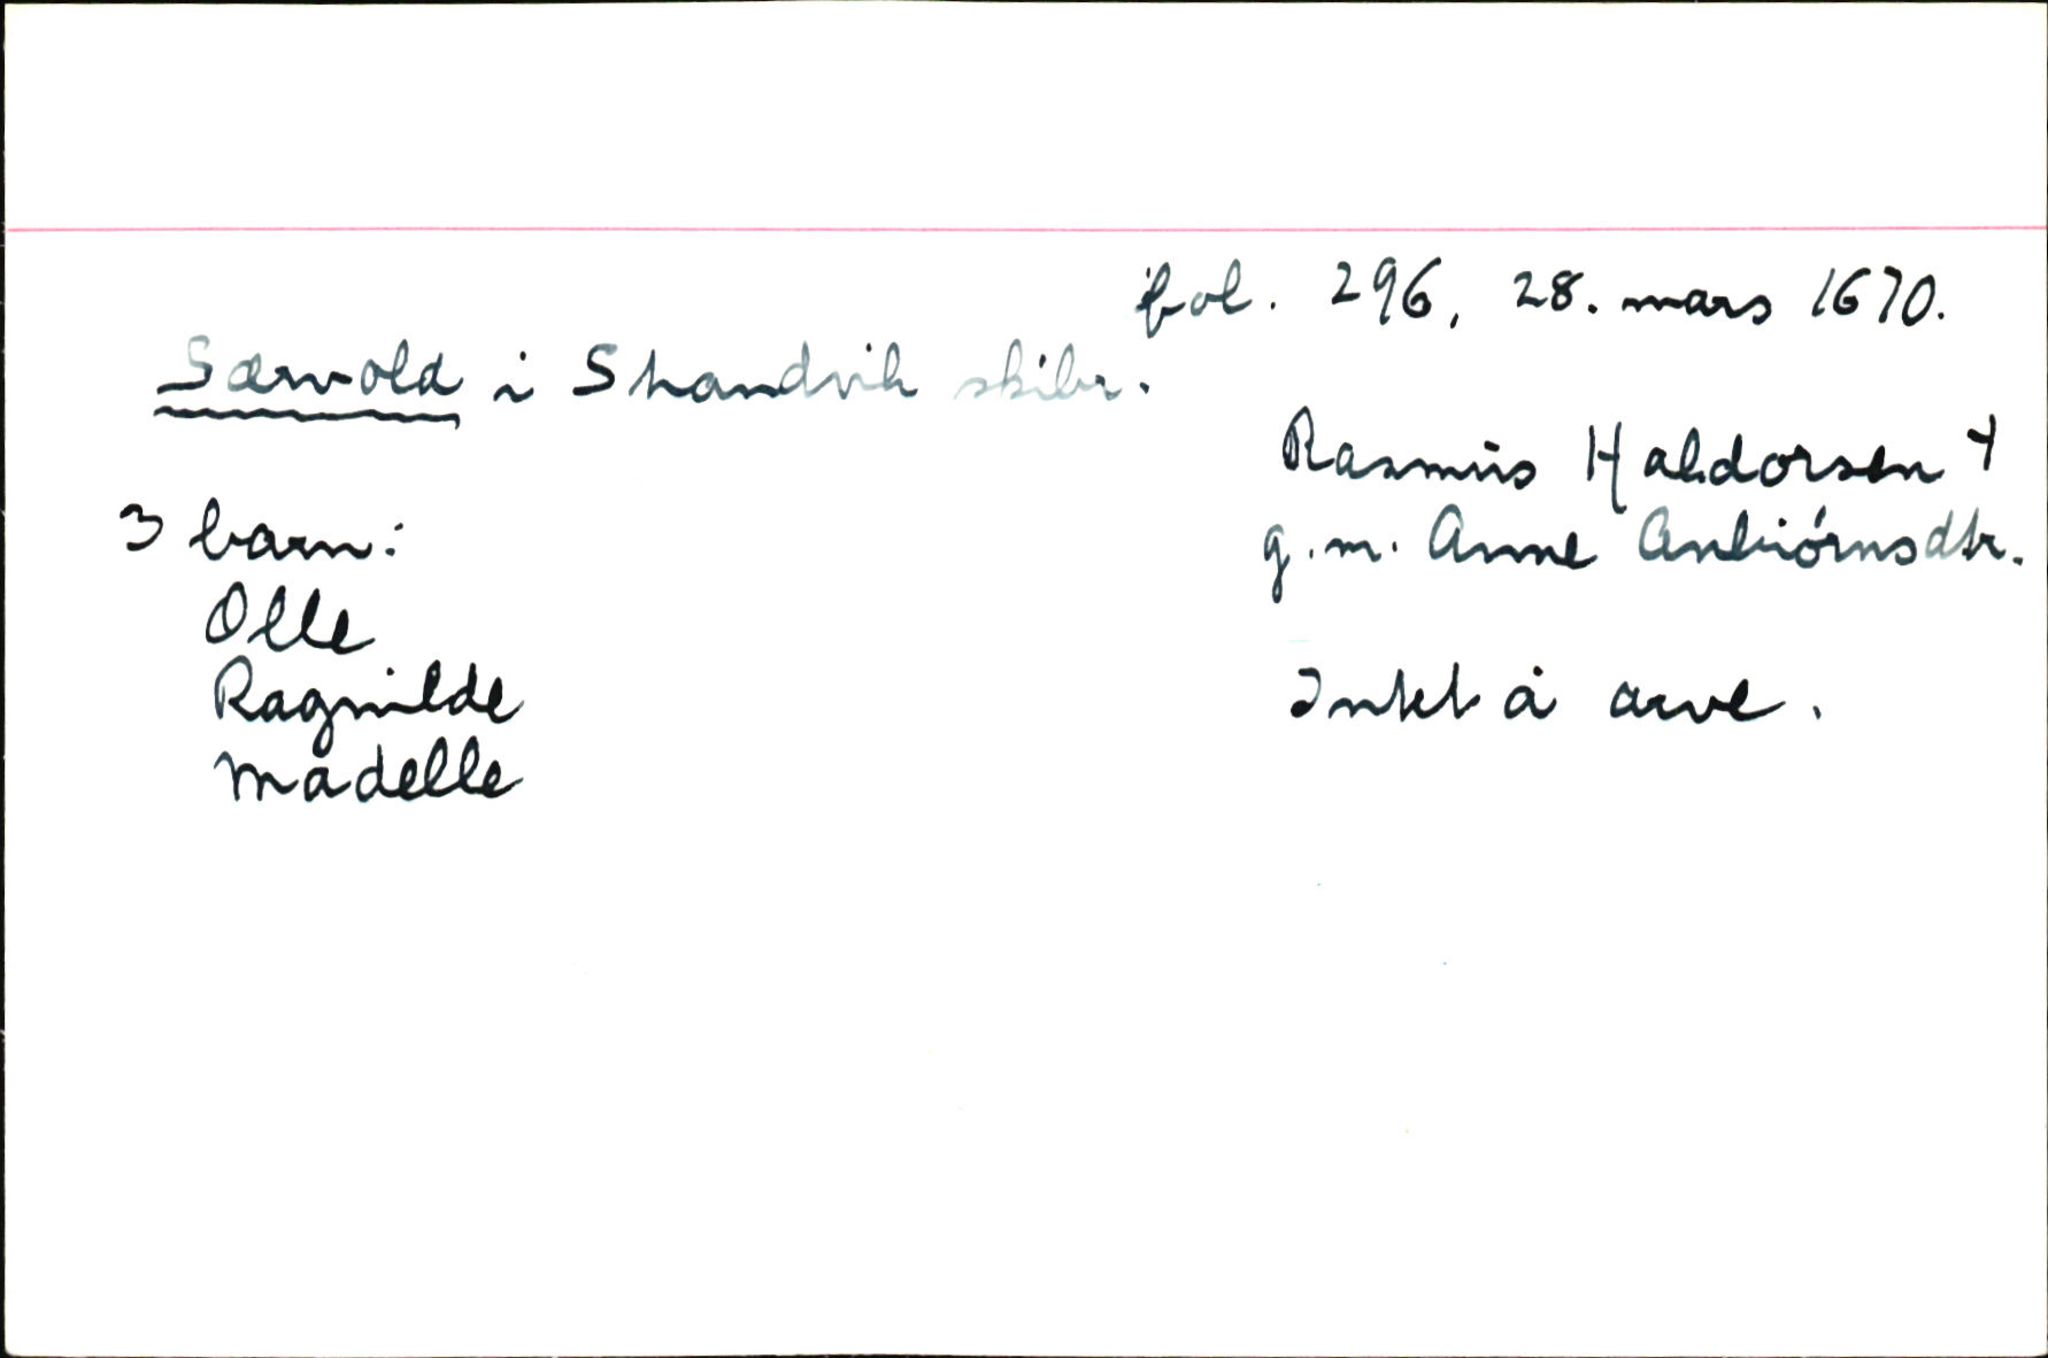 fol. 296, 28. mars 1670.
Særvold i Skandvik skibr.
Rasmus Haldorsen †
g.m. Anne Anbiórnsdtr.
3 barn:
Olle
Ragnilde
Madelle
Intet å arve.